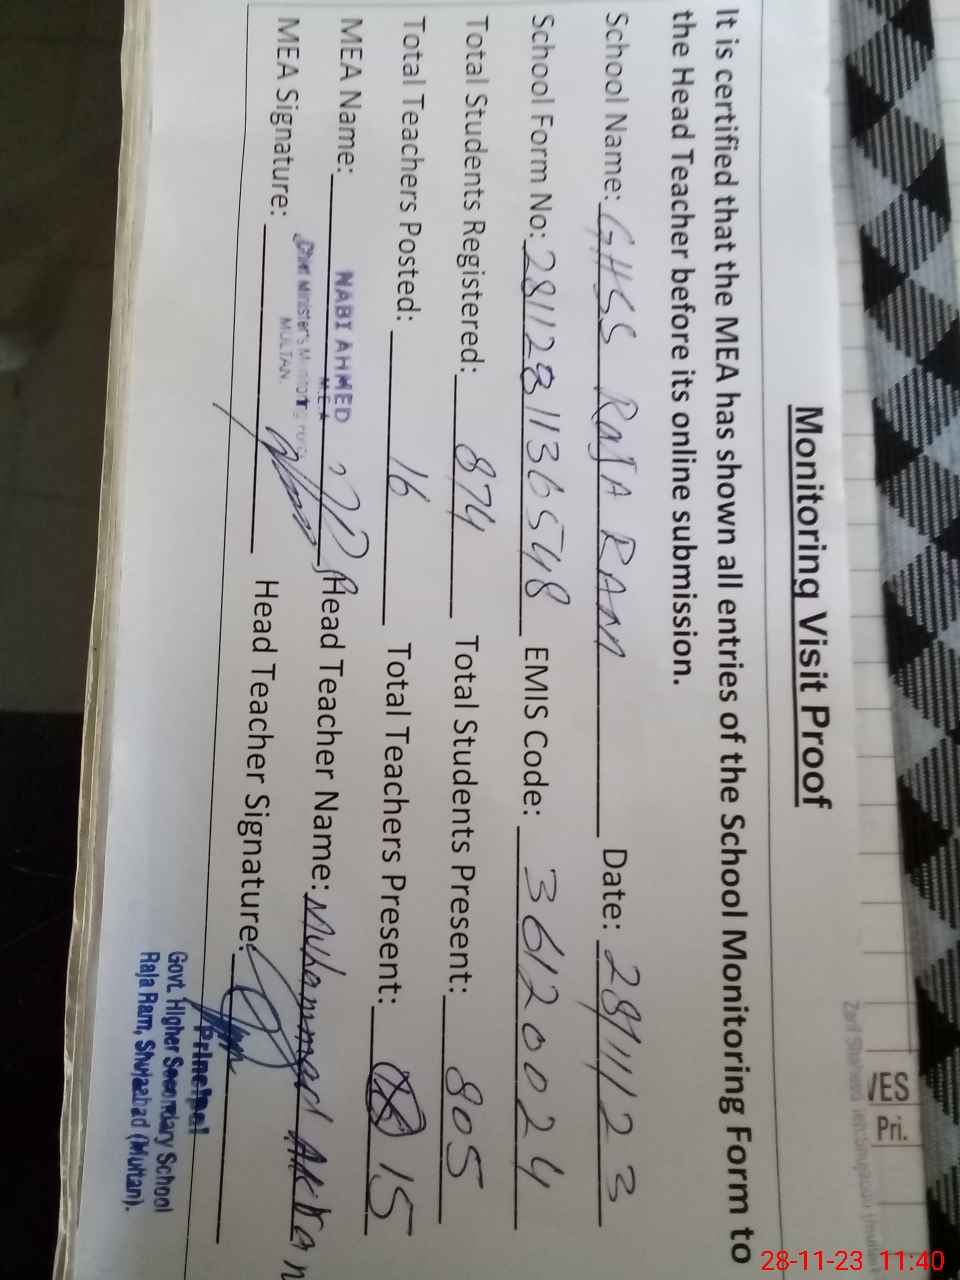 Monitoring Visit Proof
It is certified that the MEA has shown all entries of the School Monitoring Form to
the Head Teacher before its online submission.
School Name: GHSS RAJA RAM Date: 28/11/23
School Form No: 2811281136548 EMIS Code: 36120024
Total Students Registered: 874 Total Students Present: 805
Total Teachers Posted: 16 Total Teachers Present: 15
MEA Name: NABI AHMED Head Teacher Name: Muhammad AKban
M.E.A
MEA Signature: Chief Minister's Monitoring Head Teacher Signature:
MULTAN.
Principal
Govt. Higher Secondary School
Raja Ram, Shujaabad (Multan).
VES
Pri.
28-11-23 11:40